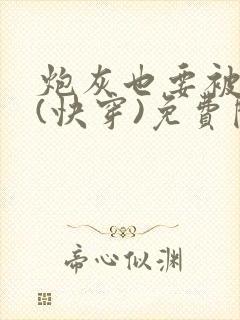 炮灰也要被
(快穿)免費
帝心似渊